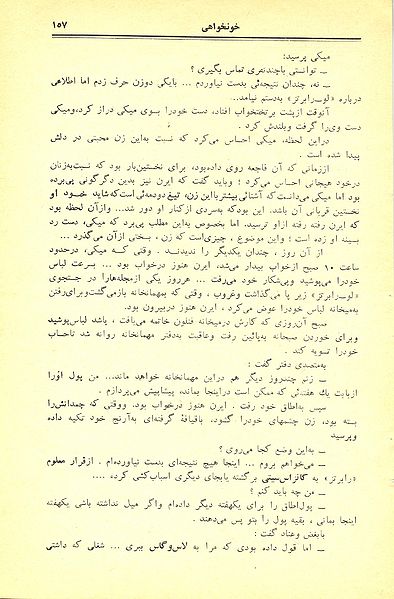 خونخواهی ۱۵۷
میکی پرسید:
ــ توانستی باچندنفری تماس بگیری ؟
ــ نه، چندان نتیجه‌ئی بدست نیاوردم ... بایکی دوزن حرف زدم اما اطلاعی
درباره «لوــ رابرتز» بدستم نیامد..
آنوقت ازپشت برتختخواب افتاد، دست خودرا بسوی میکی دراز کرد،ومیکی
دست وی‌را گرفت وبلندش کرد .
دراین لحظه، میکی احساس می‌کرد که نسبت به‌این زن محبتی در دلش
پیدا شده است .
اززمانی که آن فاجعه روی داده‌بود، برای نخستین‌بار بود که نسبت‌به‌زنان
درخود هیجانی احساس می‌کرد ؛ وباید گفت که ایرن نیز بدین دگرگونی پی‌برده
بود اما میکی می‌دانست‌که آشنائی بیشتربااین زن، تیغ دودمه‌ئی است‌که‌شاید خود او
نخستین قربانی آن باشد. این بودکه به‌سردی ازکنار او دور شد... وازآن لحظه بود
که ایرن رفته رفته ازاو ترسید. اما بخصوص به‌این مطلب پی‌برد که میکی، دست رد
بسینه او زده است ؛ واین موضوع ، چیزی‌است که زن ، بسختی ازآن می‌گذرد ...
از آن روز ، چندان یکدیگر را ندیدنــد . وقتی کــه میکی، درحدود
ساعت ۱۰ صبح ازخواب بیدار می‌شد، ایرن هنوز درخواب بود... بسرعت لباس
خودرا می‌پوشید وپی‌شکار خود می‌رفت ... هرروز یکی ازمحله‌هارا در جستجوی
«لوــ رابرتز» زیر پا می‌گذاشت وغروب ، وقتی که بمهمانخانه بازمی‌گشت‌وبرای‌رفتن
به‌میخانه لباس خودرا عوض می‌کرد ، ایرن هنوز دربیرون بود.
صبح آن‌روزی که کارش درمیخانه فنلون خاتمه می‌یافت ، پاشد لباس‌پوشید
وبرای خوردن صبحانه به‌پائین رفت وعاقبت به‌دفتر مهمانخانه روانه شد تاحساب
خودرا تسویه کند .
به‌متصدی دفتر گفت :
ــ زنم چندروز دیگر هم دراین مهمانخانه خواهد ماند... من پول اورا
ازبابت یك هفته‌ئی که ممکن است دراینجا بماند، پیشاپیش می‌پردازم .
سپس به‌اطاق خود رفت . ایرن هنوز درخواب بود، ووقتی که چمدانش‌را
بسته بود، زن چشمهای خودرا گشود، باقیافهٔ گرفته‌ای به‌آرنج خود تکیه داده
وپرسید
ــ به‌این وضع کجا می‌روی ؟
ــ می‌خواهم بروم ... اینجا هیچ نتیجه‌ای بدست نیاورده‌ام . ازقرار معلوم
«رابرتز» به کانزاس‌سیتی برگشته یابجای دیگری اسباب‌کشی کرده ....
ــ من چه باید کنم ؟
ــ پول‌اطاق را برای یکهفته دیگر داده‌ام واگر میل نداشته باشی یکهفته
اینجا بمانی ، بقیه پول را بتو پس می‌دهند .
بابغض وعناد گفت :
ــ اما قول داده بودی که مرا به لاس‌وگاس ببری ... شغلی که داشتی